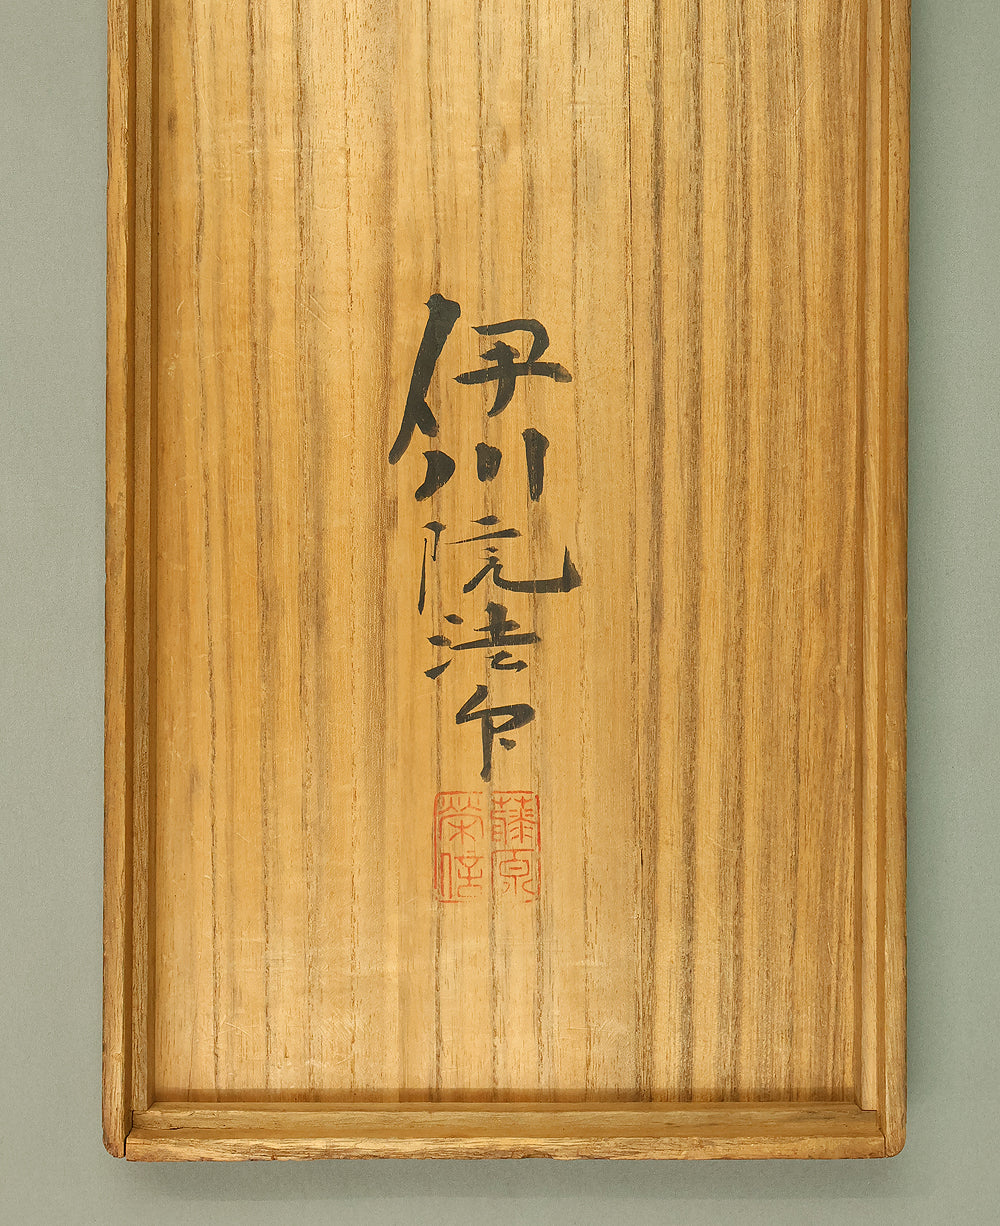 伊川院法印
藤原
榮信